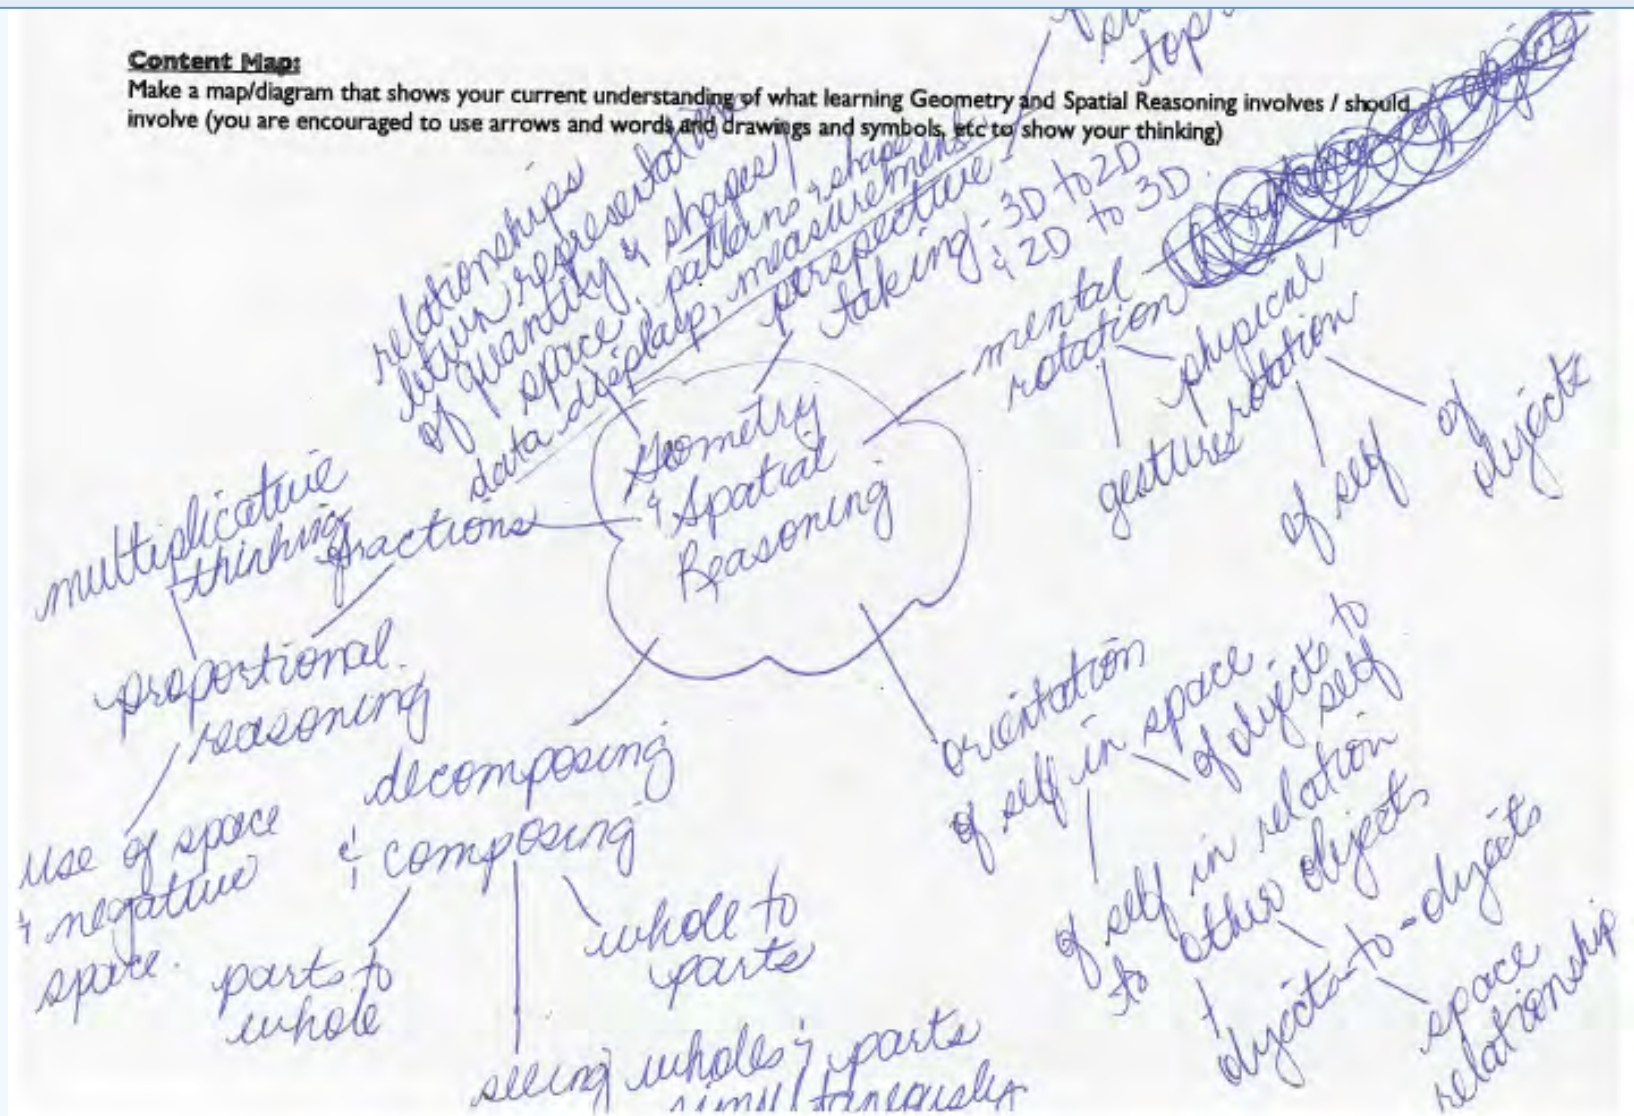 Content Map:
Make a map/diagram that shows your current understanding of what learning Geometry and Spatial Reasoning involves / should
involve (you are encouraged to use arrows and words and drawings and symbols, etc to show your thinking)
top
relationships
representations
of quantity & shapes
space, patterns & shape
data display, measurement
perspective
taking - 3D to 2D
& 2D to 3D
mental
rotation
physical
rotation
gestures
of self
of
objects
Geometry
& Spatial
Reasoning
multiplicative
thinking
fractions
proportional
reasoning
use of space
& negative
space.
decomposing
& composing
parts to
whole
whole to
parts
seeing wholes & parts
simultaneously
orientation
of self in space
of objects to
self
of self in relation
to other objects
objects-to-objects
space
relationship